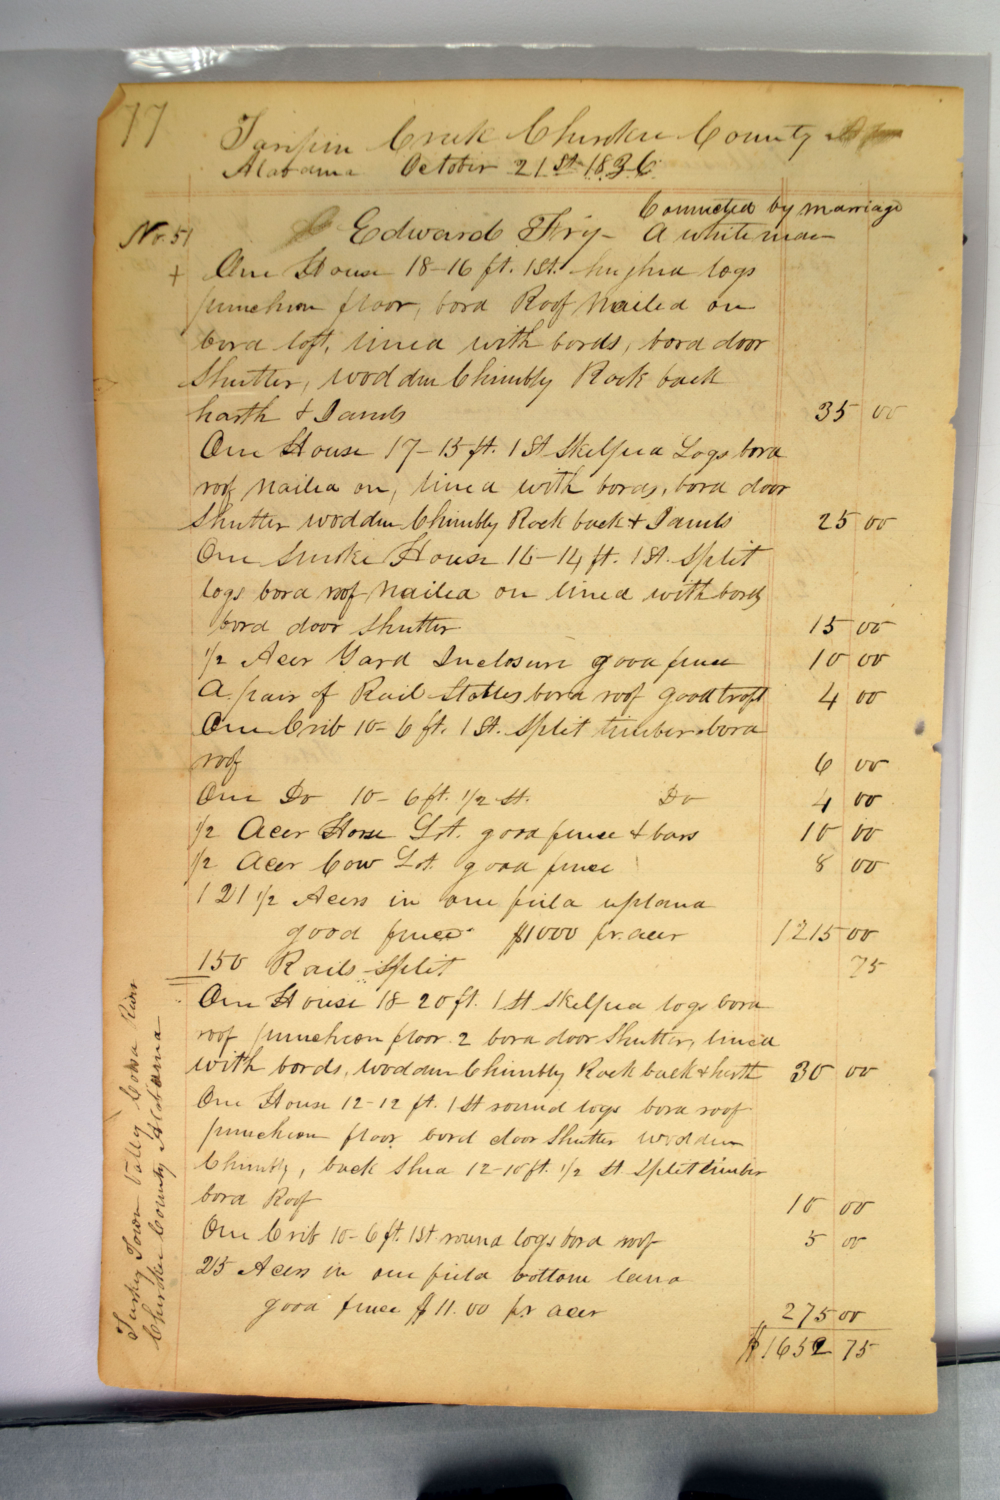 77
Taripin Creek Cherokee County
Alabama October 21st 1836
Connected by marriage
No. 51 Edward Fry - A white man
+ One House 18-16 ft. 1 St. hughed logs
puncheon floor, bord Roof Nailed on
bord loft, lined with bords, bord door
Shutter, wodden Chimbly Rock back
harth & Jambs 35 00
One House 17-15 ft. 1 St Skelped Logs bord
roof Nailed on, lined with bords, bord door
Shutter wodden Chimbly Rock back & Jambs 25 00
One Smoke House 16-14 ft. 1 St. Split
logs bord roof Nailed on lined with bords
bord door Shutter 15 00
1/2 Acer Yard Inclosure good fence 10 00
A pair of Rail Stables bord roof good troft 4 00
One Crib 10-6 ft. 1 St. Split timber bord
roof 6 00
One Do 10-6 ft. 1/2 St. Do 4 00
1/2 Acer Horse Lot. good fence & bars 10 00
1/2 Acer Cow Lot. good fence 8 00
121 1/2 Acers in one field upland
good fence $1000 pr. acer 1215 00
150 Rails Split 75
One House 18-20 ft. 1 St Skelped logs bord
roof puncheon floor. 2 bord door Shutter, lined
with bords, wodden Chimbly Rock back & harth 30 00
One House 12-12 ft. 1 St round logs bord roof
puncheon floor bord door Shutter wodden
Chimbly, back Shed 12-10 ft. 1/2 St. Split timber
bord Roof 10 00
One Crib 10-6 ft. 1 St round logs bord roof 5 00
25 Acers in one field bottom land
good fence $11.00 pr acer 275 00
$1652 75
Turkey Town Vally Coosa River
Cherokee County Alabama